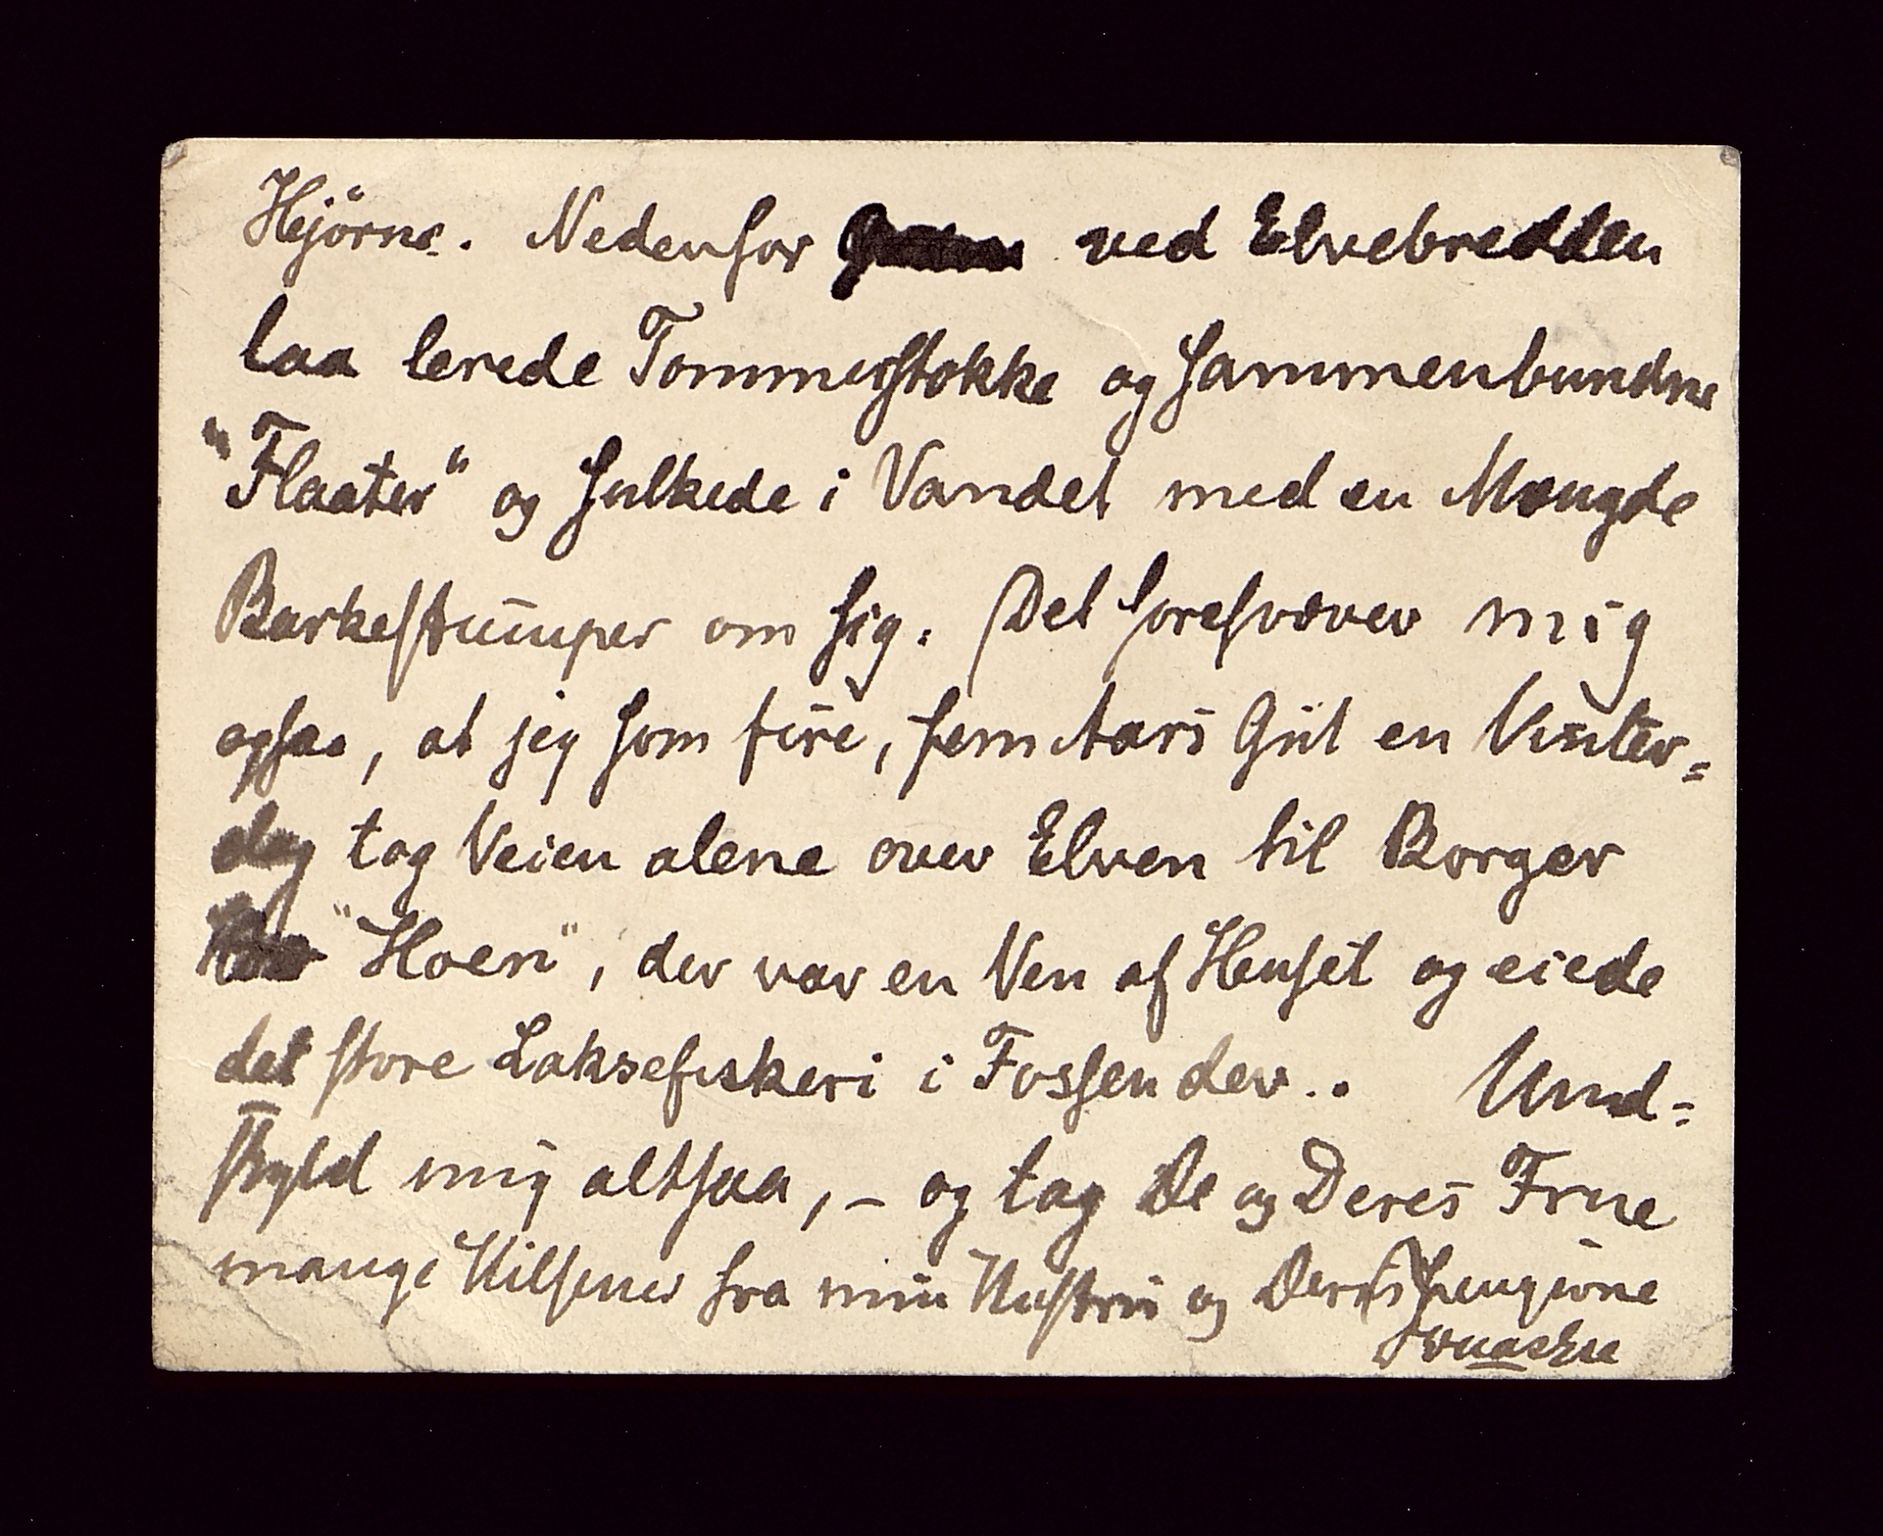 Hjörne. Nedenfor ved Elvebredden
laa lerede Tømmerstokke og sammenbundne
"Flaater" og skulkede i Vandet med en Mængde
Barkestumper om sig. Det foresvæver mig
ogsaa, at jeg som fire, fem Aars Gut en Vinter=
dag tog Veien alene over Elven til Borger
"Hoen", der var en Ven af Huset og eiede
det store Laksefiskeri i Fossen der.. Und=
skyld mig altsaa, – og tag De og Deres Frue
mange Hilsener fra min Hustru og Deres hengivne
Jonas Lie